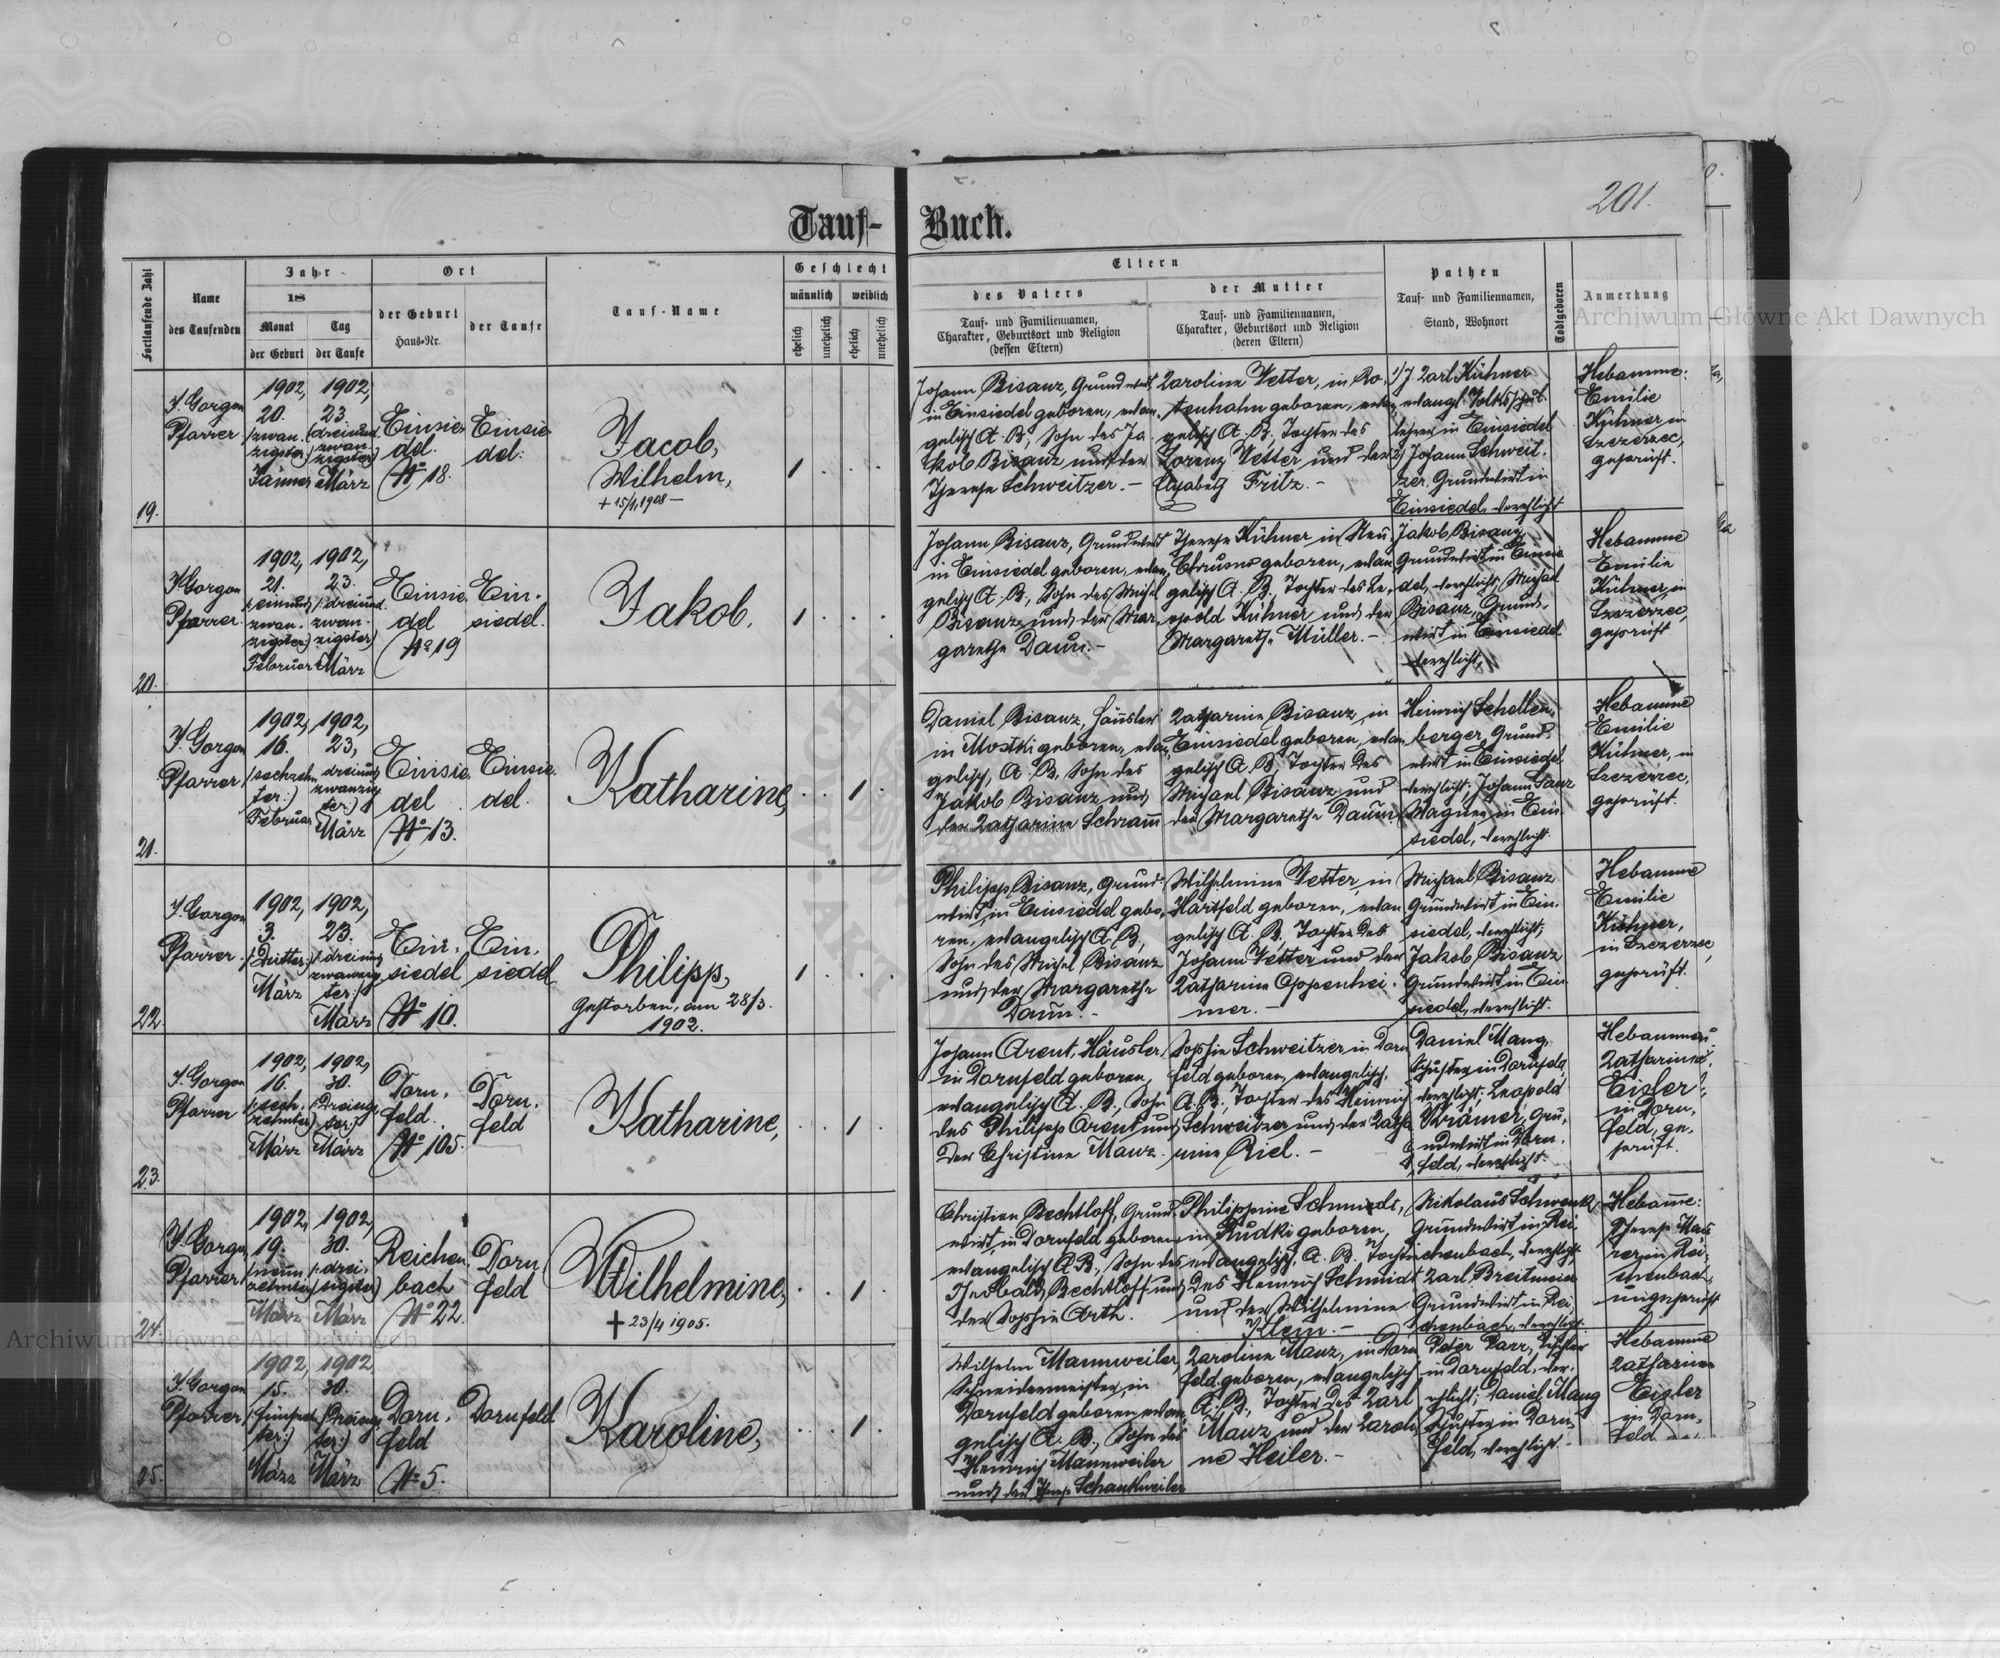 201.
Tauf-Buch.
Fortlaufende Zahl
Name
des Taufenden
Jahr
18
Monat
der Geburt
Tag
der Taufe
Ort
der Geburt
Haus-Nr.
der Taufe
Tauf-Name
Geschlecht
männlich
weiblich
ehelich
unehelich
ehelich
unehelich
Eltern
des Vaters
Tauf- und Familiennamen,
Charakter, Geburtsort und Religion
(dessen Eltern)
der Mutter
Tauf- und Familiennamen,
Charakter, Geburtsort und Religion
(deren Eltern)
Pathen
Tauf- und Familiennamen,
Stand, Wohnort
Todtgeboren
Anmerkung
Archiwum Główne Akt Dawnych
19.
J. Gorgon
Pfarrer
1902,
20.
(zwan-
zigster)
Jänner
1902,
23
(dreiund
zwan-
zigster)
März
Einsie
del.
No 18.
Einsie
del.
Jacob,
Wilhelm,
+ 15/1, 1908 —
1
Johann Bisanz, Grundwirt
in Einsiedel geboren, evan-
gelisch A. B., Sohn des Ja-
kob Bisanz und der
Therese Schweitzer. —
Karoline Vetter, in Ro-
tenhahn geboren, evan-
gelisch A. B., Tochter des
Lorenz Vetter und der
Elisabeth Fritz. —
1) J. Karl Kühner
evangl. Volksschul
lehrer in Einsiedel
2) Johann Schweit-
zer, Grundwirt in
Einsiedel, verehlicht
Hebamme:
Emilie
Kühner in
Szczerzec,
geprüft.
20.
J. Gorgon
Pfarrer
1902,
21.
(:einund
zwan-
zigster)
Februar
1902,
23.
(:dreiund
zwan-
zigster)
März
Einsie
del
No 19
Ein-
siedel.
Jakob,
1
Johann Bisanz, Grundwirt
in Einsiedel geboren, evan
gelisch A. B., Sohn des Michel
Bisanz und der Mar-
garethe Daum. —
Therese Kühner in Neu
Chrusno geboren, evan
gelisch A. B., Tochter des Le-
opold Kühner und der
Margarethe Müller. —
Jakob Bisanz,
Grundwirt in Einsie
del, verehlicht; Michael
Bisanz, Grund-
wirt in Einsiedel
verehlicht,
Hebamme
Emilie
Kühner, in
Szczerzec,
geprüft
21.
J. Gorgon
Pfarrer
1902,
16.
(sechzehn
ter:)
Februar
1902,
23,
dreiund
zwanzig
ter:)
März
Einsie
del
No 13.
Einsie-
del.
Katharine,
1
Daniel Bisanz, Häusler
in Mostki geboren, evan
gelisch, A. B., Sohn des
Jakob Bisanz und
der Katharine Schramm
Katharine Bisanz in
Einsiedel geboren, evan
gelisch A. B., Tochter des
Michael Bisanz und
der Margarethe Daum
Heinrich Schollen-
berger, Grund-
wirt in Einsiedel
verehlicht; Johann Ganz
Wagner in Ein-
siedel, verehlicht
Hebamme
Emilie
Kühner, in
Szczerzec,
geprüft.
22
J. Gorgon
Pfarrer
1902,
3.
(:Dritter:)
März
1902,
23.
(:dreiund
zwanzig
ter:)
März
Ein-
siedel
No 10.
Ein-
siedel
Philipp,
Gestorben, am 28/3.
1902.
1
Philipp Bisanz, Grund-
wirt in Einsiedel gebo-
ren, evangelisch A. B.,
Sohn des Michel Bisanz
und der Margarethe
Daum. —
Wilhelmine Vetter, in
Hartfeld geboren, evan
gelisch A. B., Tochter des
Johann Vetter und der
Katharine Oppenhei-
mer. —
Michael Bisanz
Grundwirt in Ein-
siedel, verehlicht;
Jakob Bisanz
Grundwirt in Ein-
siedel, verehlicht.
Hebamme
Emilie
Kühner,
in Szczerzec,
geprüft.
23.
J. Gorgon
Pfarrer
1902,
16.
(:sech-
zehnter)
März
1902,
30.
(:Dreissig
ster:)
März
Dorn-
feld.
No 105.
Dorn-
feld
Katharine,
1
Johann Arent, Häusler
in Dornfeld geboren,
evangelisch A. B., Sohn
des Philipp Arent und
der Christine Manz.
Sophie Schweitzer in Dorn
feld geboren, evangelisch,
A. B., Tochter des Heinrich
Schweitzer und der Katha
rine Riel. —
Daniel Mang,
Schuster in Dornfeld,
verehlicht; Leopold
Krämer, Gru-
ndwirt in Dorn-
feld, verehlicht.
Hebamme
Katharine
Eisler
in Dorn-
feld, ge-
prüft.
24.
J. Gorgon
Pfarrer
1902,
19.
(:neun-
zehnter)
März
1902,
30.
(:drei-
sigster)
März
Reichen
bach
No 22.
Dorn
feld
Wilhelmine,
+ 23/4 1905.
1
Christian Bechtloff, Grund-
wirt in Dornfeld geboren
evangelisch A. B., Sohn des
Theobald Bechtloff und
der Sophie Arth.
Philippine Schmidt,
in Rudki geboren,
evangelisch, A. B., Tochter
des Heinrich Schmidt
und der Wilhelmine
Klein. —
Nikolaus Schwenk,
Grundwirt in Rei-
chenbach, verehlicht,
Karl Breitmeier
Grundwirt in Rei-
chenbach, verehlicht.
Hebamme:
Therese
in Rei-
chenbach,
ungeprüft
Archiwum Główne Akt Dawnych
25.
J. Gorgon
Pfarrer
1902,
15.
(:fünfzehn
ter:)
März
1902,
30.
(:Dreissig
ster:)
März
Dorn-
feld
No 5.
Dornfeld
Karoline,
1
Wilhelm Mannweiler,
Schneidermeister in
Dornfeld geboren, evan-
gelisch A. B., Sohn des
Heinrich Mannweiler
und der Therese Schankweiler
Karoline Manz, in Dorn
feld geboren, evangelisch
A. B., Tochter des Karl
Manz und der Karoli
ne Heiler. —
Peter Parr, Tischler
in Dornfeld, ver-
ehlicht; Daniel Mang
Schuster in Dorn-
feld, verehlicht —
Hebamme
Katharine
Eisler
in Dorn-
feld